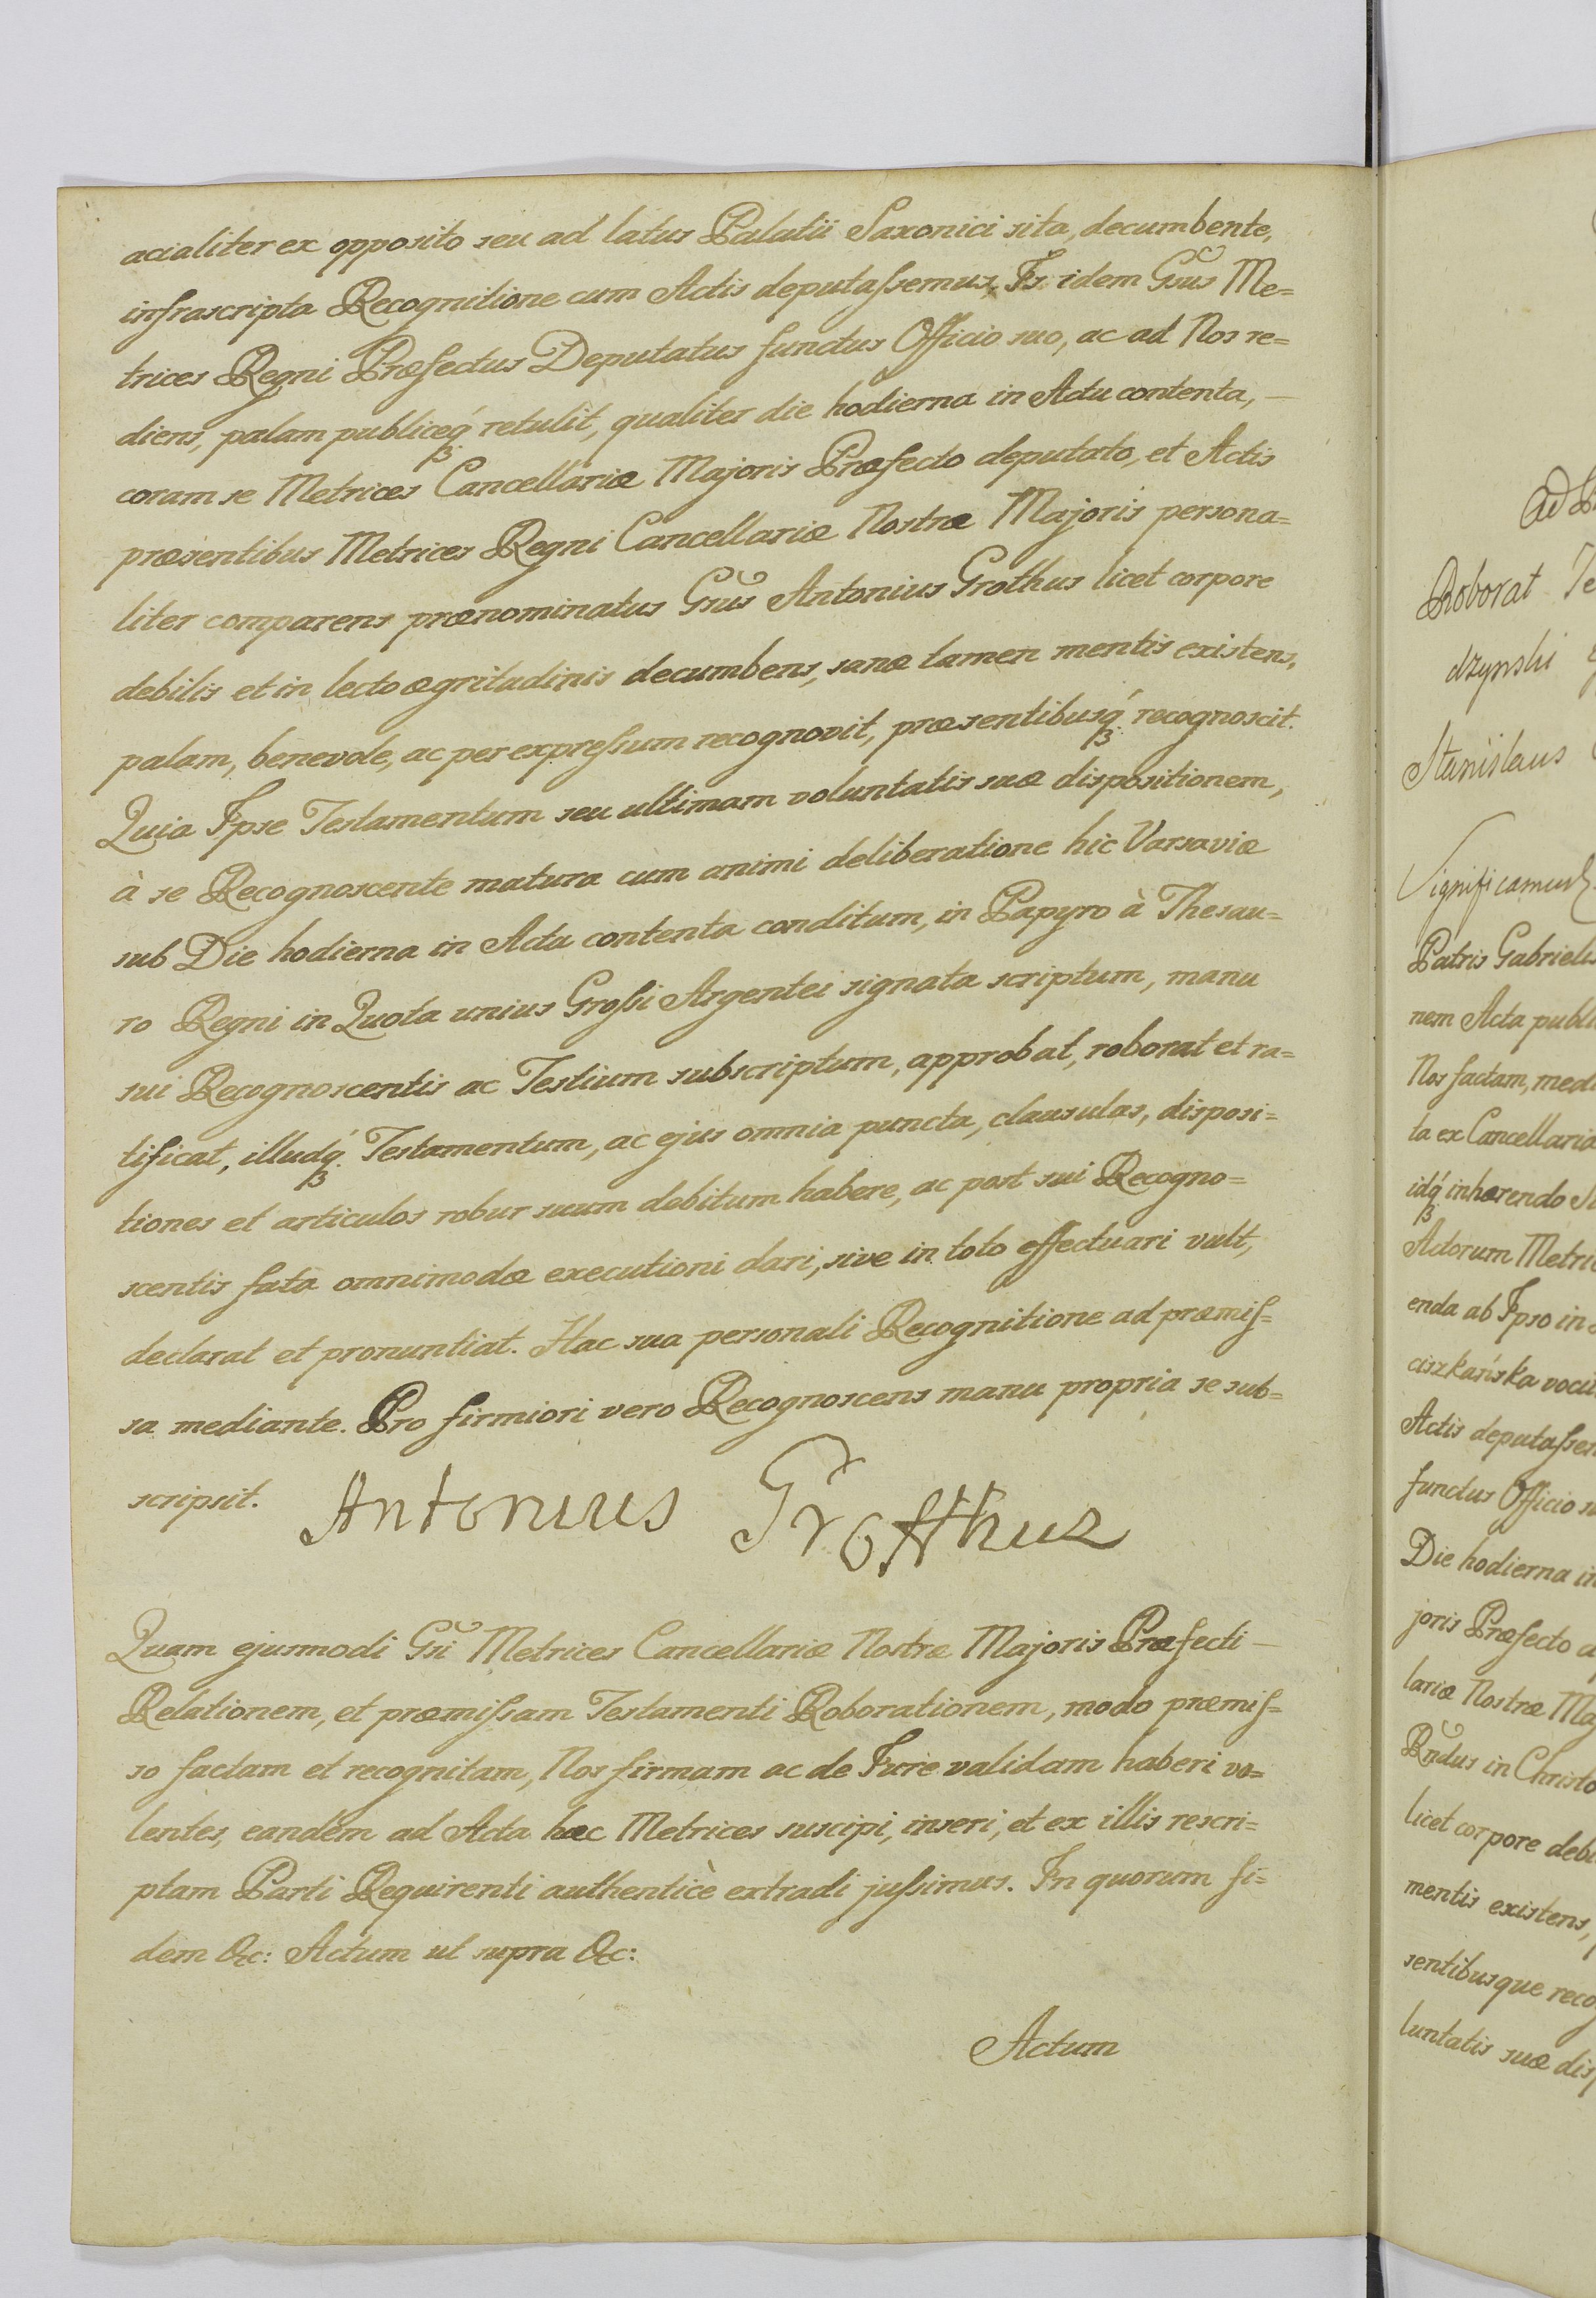 acialiter ex opposito seu ad latus Palatii Saxonici sita, decumbente,
infrascripta Recognitione cum Actis deputassemus. Is idem Gsus Me=
trices Regni Præfectus Deputatus functus Officio suo, ac ad Nos re=
diens, palam publiceq́ retulit, qualiter die hodierna in Actu contenta, —
coram se Metrices Cancellariæ Majoris Præfecto deputato, et Actis
præsentibus Metrices Regni Cancellariæ Nostræ Majoris persona=
liter comparens prænominatus Gnus Antonius Grothus licet corpore
debilis et in lecto ægritudinis decumbens, sanæ tamen mentis existens,
palam, benevole, ac per expressum recognovit, præsentibusq́ recognoscit.
Quia Ipse Testamentum seu ultimam voluntatis suæ dispositionem,
à se Recognoscente matura cum animi deliberatione hic Varsaviæ
sub Die hodierna in Acta contenta conditum, in Papyro à Thesau=
ro Regni in Quota unius Grossi Argentei signata scriptum, manu
sui Recognoscentis ac Testium subscriptum, approbat, roborat et ra=
tificat, illudq́ Testamentum, ac ejus omnia puncta, clausulas, disposi=
tiones et articulos robur suum debitum habere, ac post sui Recogno=
scentis fata omnimodæ executioni dari, sive in toto effectuari vult,
declarat et pronuntiat. Hac sua personali Recognitione ad præmis=
sa mediante. Pro firmiori vero Recognoscens manu propria se sub=
scripsit. Antonius Grotthus
Quam ejusmodi Gsi Metrices Cancellariæ Nostræ Majoris Præfecti —
Relationem, et præmissam Testamenti Roborationem, modo præmis=
so factam et recognitam, Nos firmam ac de Jure validam haberi vo=
lentes, eandem ad Acta hæc Metrices suscipi, inseri, et ex illis rescri=
ptam Parti Requirenti authenticè extradi jussimus. In quorum fi=
dem &c: Actum ut supra &c:
Actum
Roborat
dzynski
Stanislaus
Significamus
Patris Gabrielis
nem Acta publi
Nos factam, medi
ta ex Cancellaria
idq́ inhærendo
Actorum Metric
enda ab Ipso in
ciszkańska voci
Actis deputassem
functus Officio su
Die hodierna in
joris Præfecto d
lariæ Nostræ Ma
Rndus in Christo
licet corpore debi
mentis existens,
sentibusque recog
luntatis suæ disp